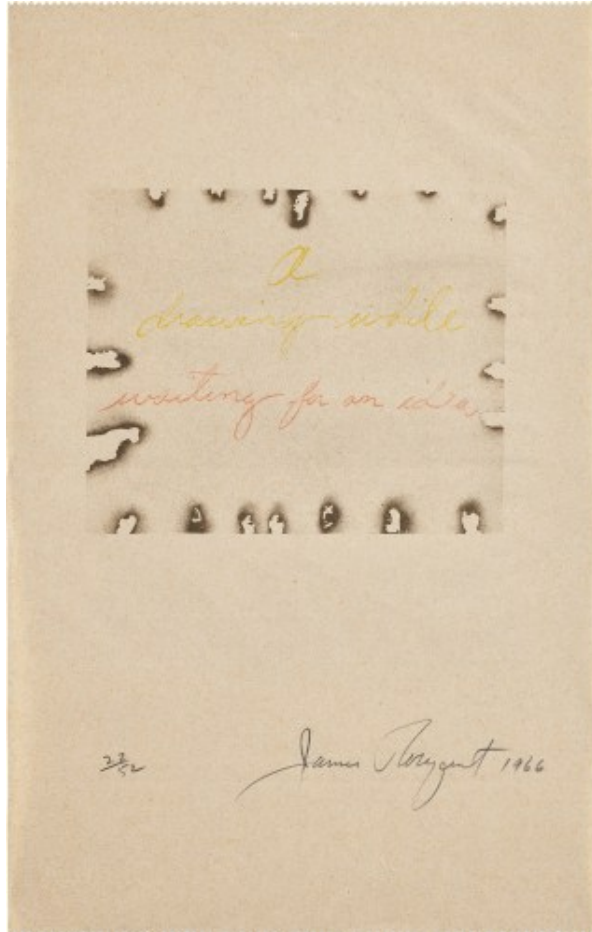 a
drawing while
waiting for an idea
James Rosenquist 1966